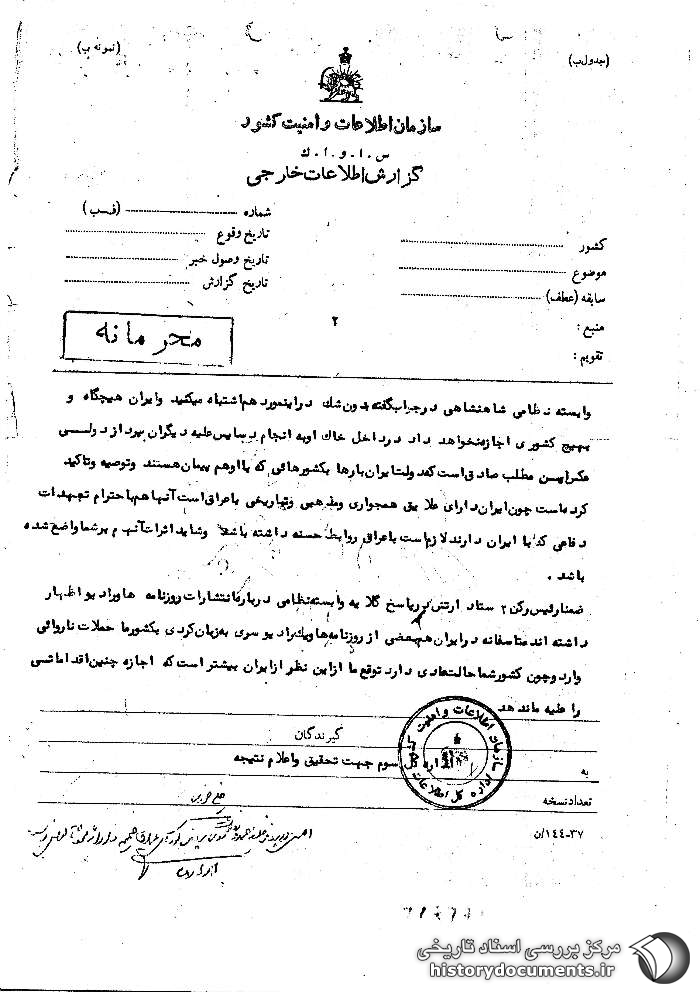 (جدول ب)
(نمونه ب)
سازمان اطلاعات و امنیت کشور
س . ا . و . ا . ک
گزارش اطلاعات خارجی
شماره (ف ب)
کشور
تاریخ وقوع
موضوع
تاریخ وصول خبر
سابقه (عطف)
تاریخ گزارش
منبع :
۲
محرمانه
تقویم :
وابسته نظامی شاهنشاهی در جواب گفته بدون شك در اینمورد هم اشتباه میکنید و ایران هیچگاه و
بهیچ کشوری اجازه نخواهد داد در داخل خاك او به انجام دسایس علیه دیگران بپردازد ولی
عکس این مطلب صادق است که دولت ایران بارها بکشورهائی که با او هم پیمان هستند توصیه و تاکید
کرده است چون ایران دارای علایق همجواری و مذهبی و تاریخی با عراق است آنها هم با احترام تعهدات
دفاعی که با ایران دارند لازم است با عراق روابط حسنه داشته باشند و شاید اثرات آنهم بر شما واضع شده
باشد .
ضمنا رئیس رکن ۲ ستاد ارتش در پاسخ گلایه وابسته نظامی درباره انتشارات روزنامه ها و رادیو اظهار
داشته اند متاسفانه در ایران هم بعضی از روزنامه ها و یک رادیو سری به زبان کردی بکشور ما حملات ناروائی
وارد و چون کشور شما حالت عادی دارد توقع ما از این نظر از ایران بیشتر است که اجازه چنین اقداماتی
را علیه ما ندهد
گیرندگان
به اداره کل سوم جهت تحقیق و اعلام نتیجه
سازمان اطلاعات و امنیت کشور
اداره کل اطلاعات
تعداد نسخه
۱۴۴-۳۷/ن
مرکز بررسی اسناد تاریخی
historydocuments.ir